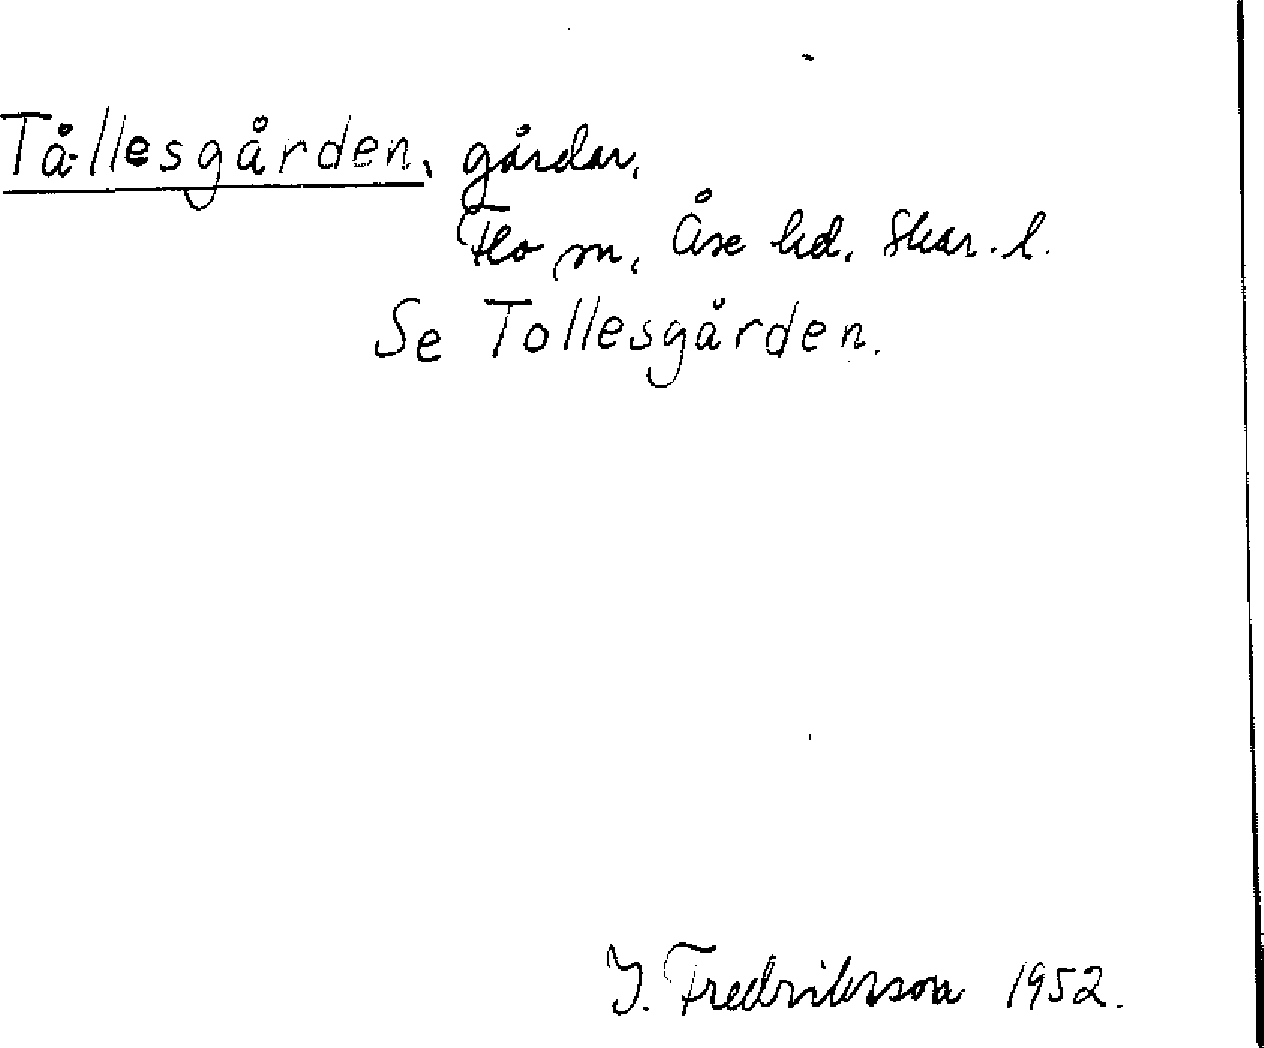 Tållesgården, gårdar,
Flo sn, Åse hd, Skar. l.
Se Tollesgården.
I. Fredriksson 1952.